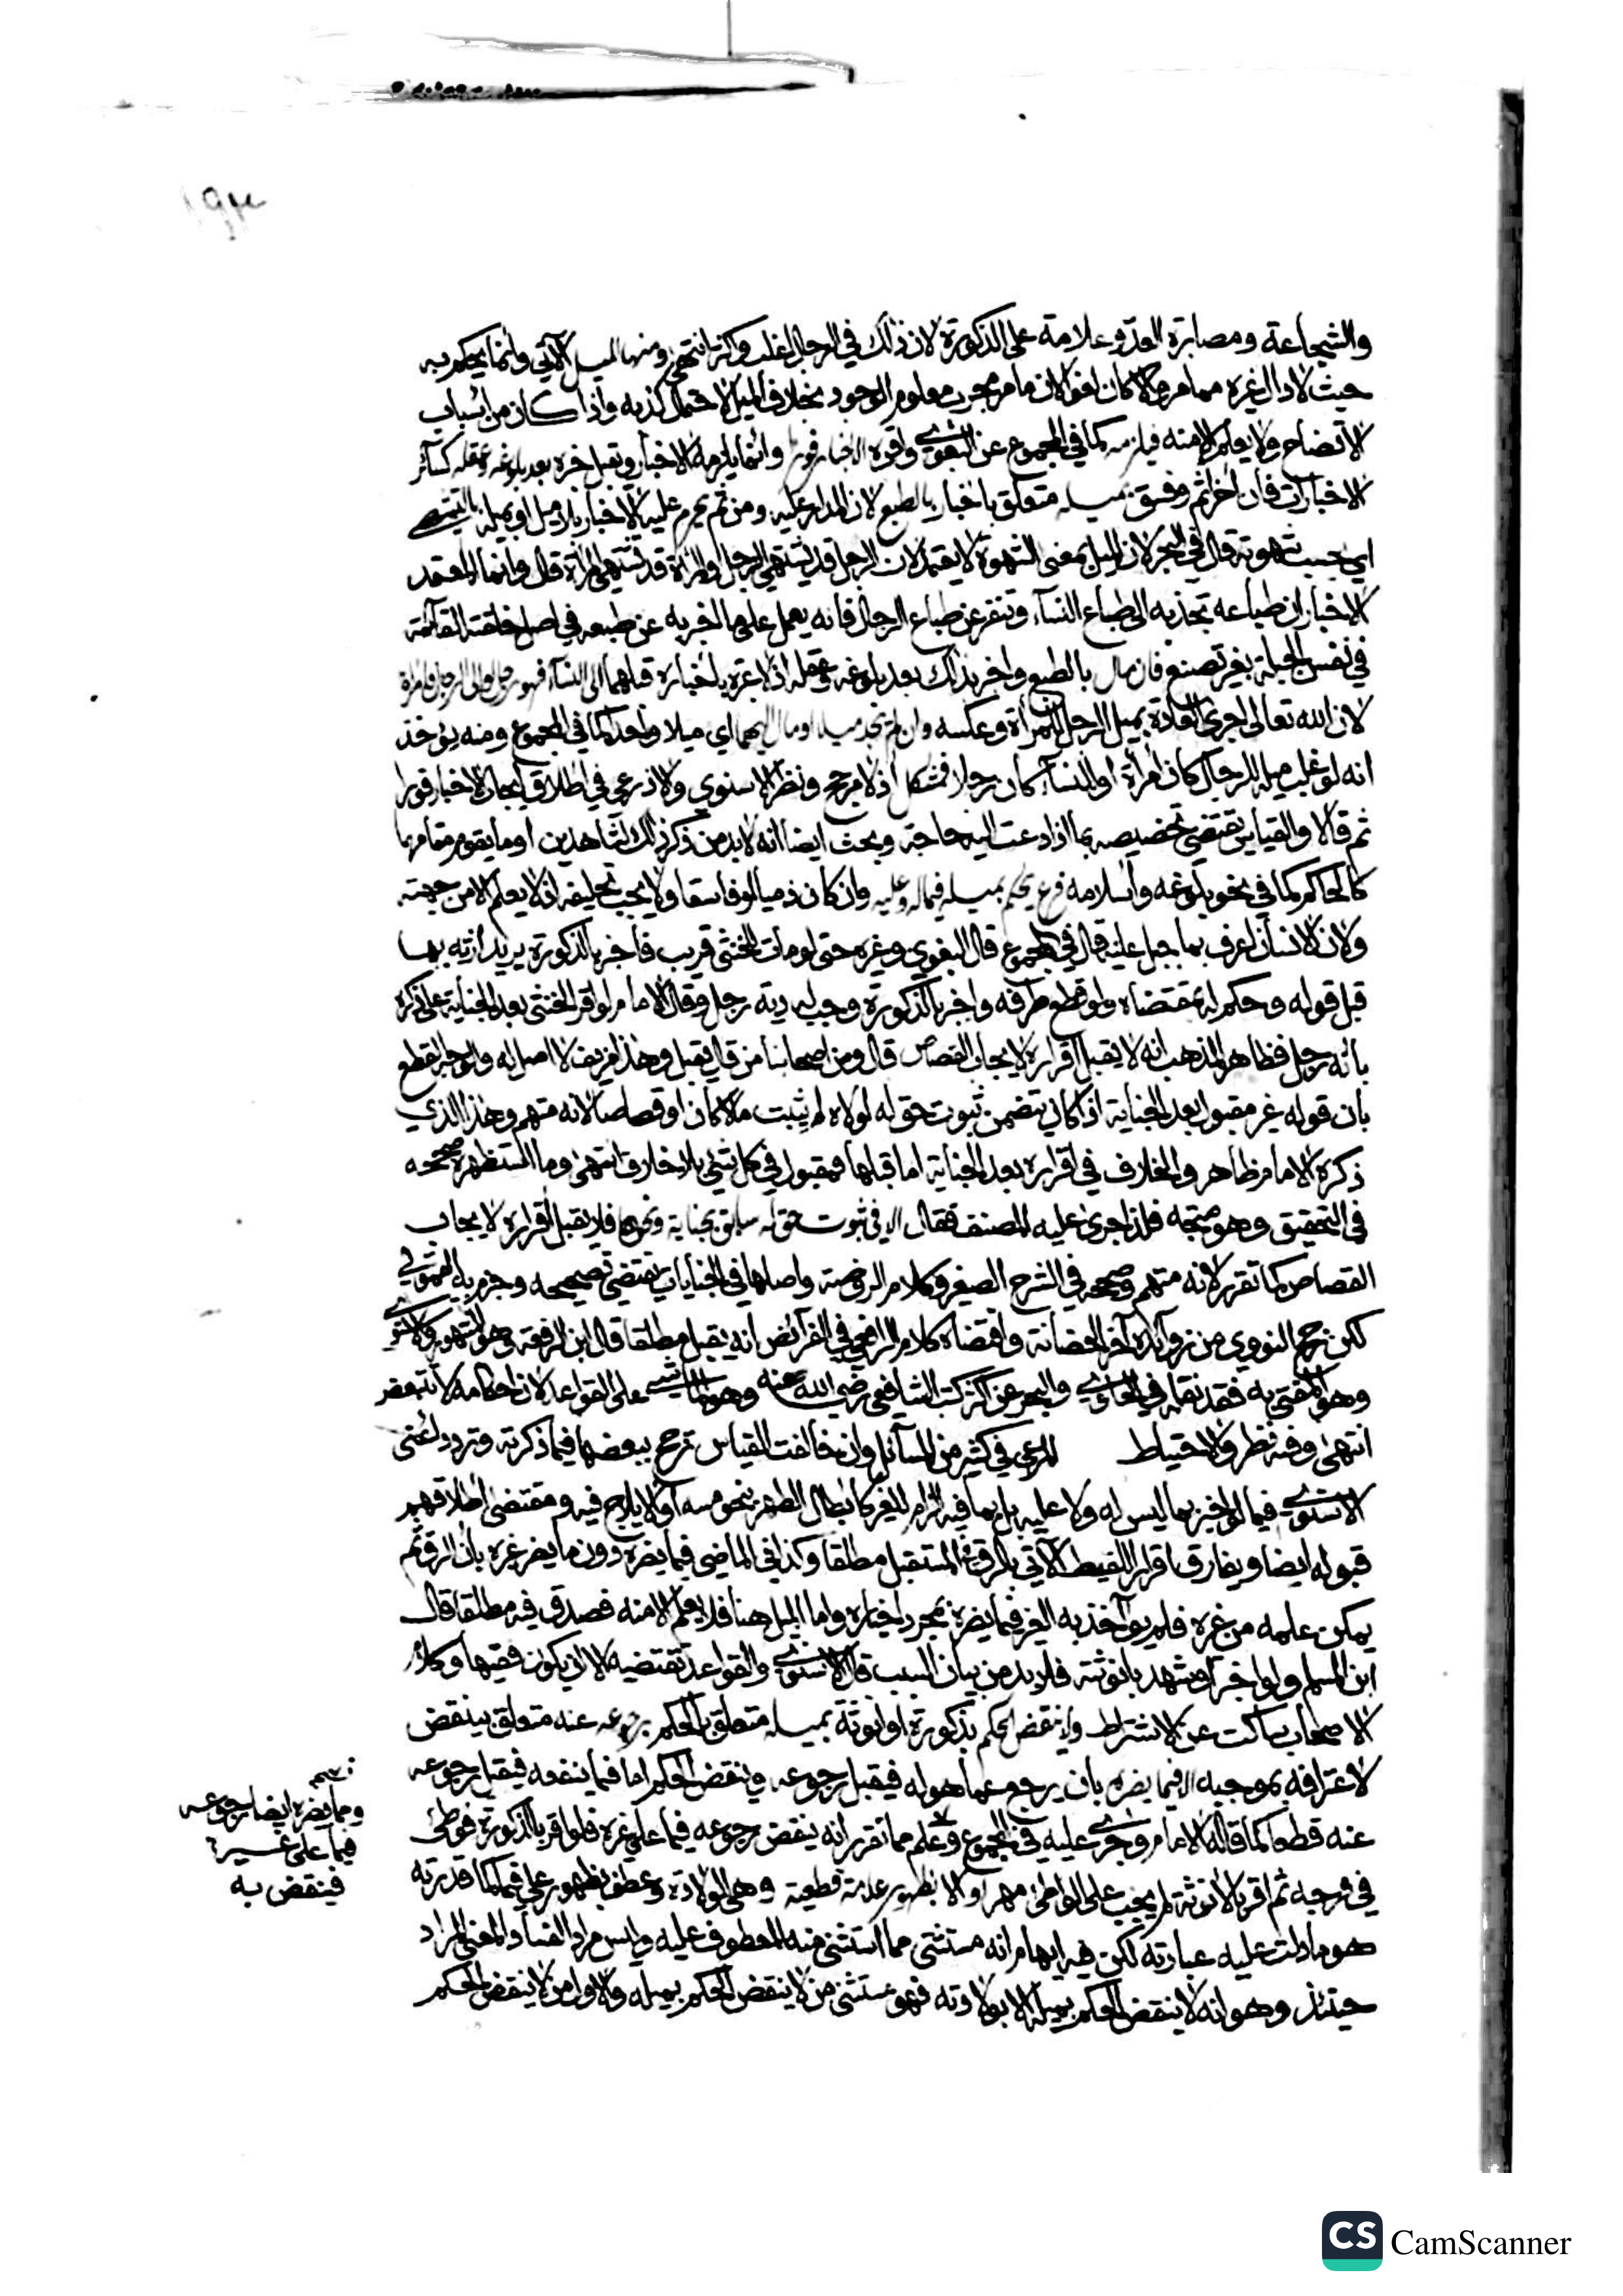 ١٩٣
والشجاعة ومصابرة العدو علامة على الذكورة لان ذلك في الرجل اغلب وكثر انتهى ومنها الميل الآتي وانما يحكم به
حيث لا دال لغيره مما مر والا كان لغوا لان ما مر مجرب معلوم الوجود بخلاف الميل لاحتمال كذبه واذا كان من اسباب
الاتضاح ولا يعلم الا منه فيلزمه كما في المجموع عن البغوي واقره الاخبار فورا وانما يلزمه الاخبار ويقبل خبره بعد بلوغه وعقله كسائر
الاخبارات فان اخر اثم وفسق بميله متعلق باخبار بالطبع لان المدار عليه ومن ثم يحرم عليه الاخبار بلا ميل او بميله بالتشهي
اي بحسب شهوته قال في البحر لان الميل بمعنى الشهوة لا يعتمد لان الرجل قد يشتهي الرجل والمراة قد تشتهي المراة قال وانما المعتمد
الاخبار ان طباعه تجذبه الى طباع النساء وتنفر عن طباع الرجال فانه يعمل على ما اخبر به عن طبعه في اصل خلقته القائمة
في نفس الجبلة بغير تصنع فان مال بالطبع واخبر بذلك بعد بلوغه وعقله اذ لا عبرة باخباره قبلهما الى النساء فهو رجل والى الرجل فامراة
لان الله تعالى اجرى العادة بميل الرجل للمراة وعكسه وان لم يجد ميلا او مال اليهما اي ميلا واحدا كما في المجموع ومنه يؤخذ
انه لو غلب ميله للرجال كان امرأة او للنساء كان رجلا فمشكل اذ لا مرجح ونظر الاسنوي والاذرعي في اطلاق ايجاب الاخبار فورا
ثم قالا والقياس يقتضي تخصيصه بما اذا دعت اليه حاجة وبحث ايضا انه لا بد من ذكر ذلك لشاهدين او ما يقوم مقامهما
كالحاكم كما في نحو بلوغه واسلامه فرع يحكم بميله فيما له وعليه وان كان ذميا او فاسقا ولا يجب تحليفه اذ لا يعلم الا من جهته
ولان الانسان اعرف بما جبل عليه قال في المجموع قال البغوي وغيره حتى لو مات للخنثى قريب فاخبر بالذكورة يريد ارثه بها
قبل قوله وحكم له بمقتضاه ولو قطع طرفه واخبر بالذكورة وجب له دية رجل وقال الامام لو اقر الخنثى بعد الجناية على ذكره
بانه رجل فظاهر المذهب انه لا يقبل اقراره لايجاب القصاص قال ومن اصحابنا من قال يقبل وهذا مزيف لا اصل له والوجه القطع
بان قوله غير مقبول بعد الجناية اذا كان يتضمن ثبوت حق له لولاه لم يثبت مالا كان او قصاصا لانه متهم وهذا الذي
ذكره الامام ظاهر والخلاف في اقراره بعد الجناية اما قبلها فمقبول في كل شيء بلا خلاف انتهى وما استظهره صححه
في التحقيق وهو متجه فلذا جرى عليه المصنف فقال الا في ثبوت حق له سابق بجناية ونحوها فلا يقبل اقراره لايجاب
القصاص كما تقرر لانه متهم وصححه في الشرح الصغير وكلام الروضة واصلها في الجنايات يقتضي تصحيحه وجزم به القمولي
لكن رجح النووي من زوائده آخر الحضانة واقتضاه كلام الرافعي في الفرائض انه يقبل مطلقا قال ابن الرفعة وهو المشهور والاسنوي
وهو المفتى به فقد نقله في الحاوي والبحر عن اكثر كتب الشافعي رضي الله عنه وهو الماشي على القواعد لان احكامه لا تتبعض
انتهى وفيه نظر والاحتياط المرعي في كثير من المسائل وان خالفت القياس ترجح ببعضها فيما ذكرته وتردد
الاسنوي فيما لو اخبر بما ليس له ولا عليه بل بما فيه الزام للغير كابطال الطهر بنحو مسه او الايلاج فيه ومقتضى اطلاقهم
قبوله ايضا ويفارق اقرار اللقيط الآتي بالرق في المستقبل مطلقا وكذا في الماضي فيما يضره دون ما يضر غيره بان الرق ثم
يمكن علمه من غيره فلم يؤاخذ به الغير فيما يضره بمجرد اخباره واما الميل هنا فلا يعلم الا منه فصدق فيه مطلقا قال
ابن المسلم ولو اخبر او شهد بانوثته فلا بد من بيان السبب قال الاسنوي والقواعد تقتضيه الا ان يكون فقيها وكلام
الاصحاب ساكت عن الاشتراط ولا ينقض الحكم بذكورة او انوثة بميله متعلق بالحكم برجوعه عنه متعلق بينقض
لاعترافه بموجبه الا فيما يضره بان يرجع عما هو له فيقبل رجوعه وينقض الحكم اما فيما ينفعه فيقبل رجوعه
عنه قطعا كما قاله الامام وجرى عليه في المجموع وعلم مما تقرر انه ينقض رجوعه فيما على غيره فلو اقر بالذكورة فوطئ
في فرجه ثم اقر بالانوثة لم يجب على الواطئ مهر او الا بظهور علامة قطعية وهي الولادة وعطف بظهور على فيما كما قدرته
هو ما دلت عليه عبارته لكن فيه ايهام انه مستثنى مما استثنى منه المعطوف عليه وليس مرادا لفساد المعنى المراد
حينئذ وهو انه لا ينقض الحكم بميله الا بولادته فهو مستثنى من لا ينقض الحكم بميله والاول من لا ينقض الحكم
ومما يضره ايضا رجوعه
فيما على غيره
فينقض به
CS CamScanner